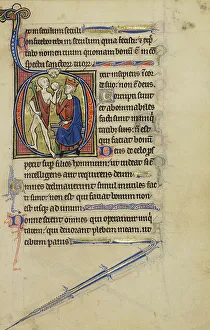 et in seculum seculi
Confitebor tibi in seculum quia fecisti & exp
tabo nomen tuum quoniam bonum est in
spectu sanctorum tuorum
insipiens in cor
de suo non est deus
Corrupti sunt
et abominabiles
facti sunt in
non est
qui faciat bonum
Deus de celo
pexit super filios hominum ut videat si est
intelligens aut requirens deum
Omnes declinaverunt simul inutiles fac
ti sunt non est qui faciat bonum non
est usque ad unum
Nonne scient omnes qui operantur
tatem qui devorant plebem meam ut
cibum panis